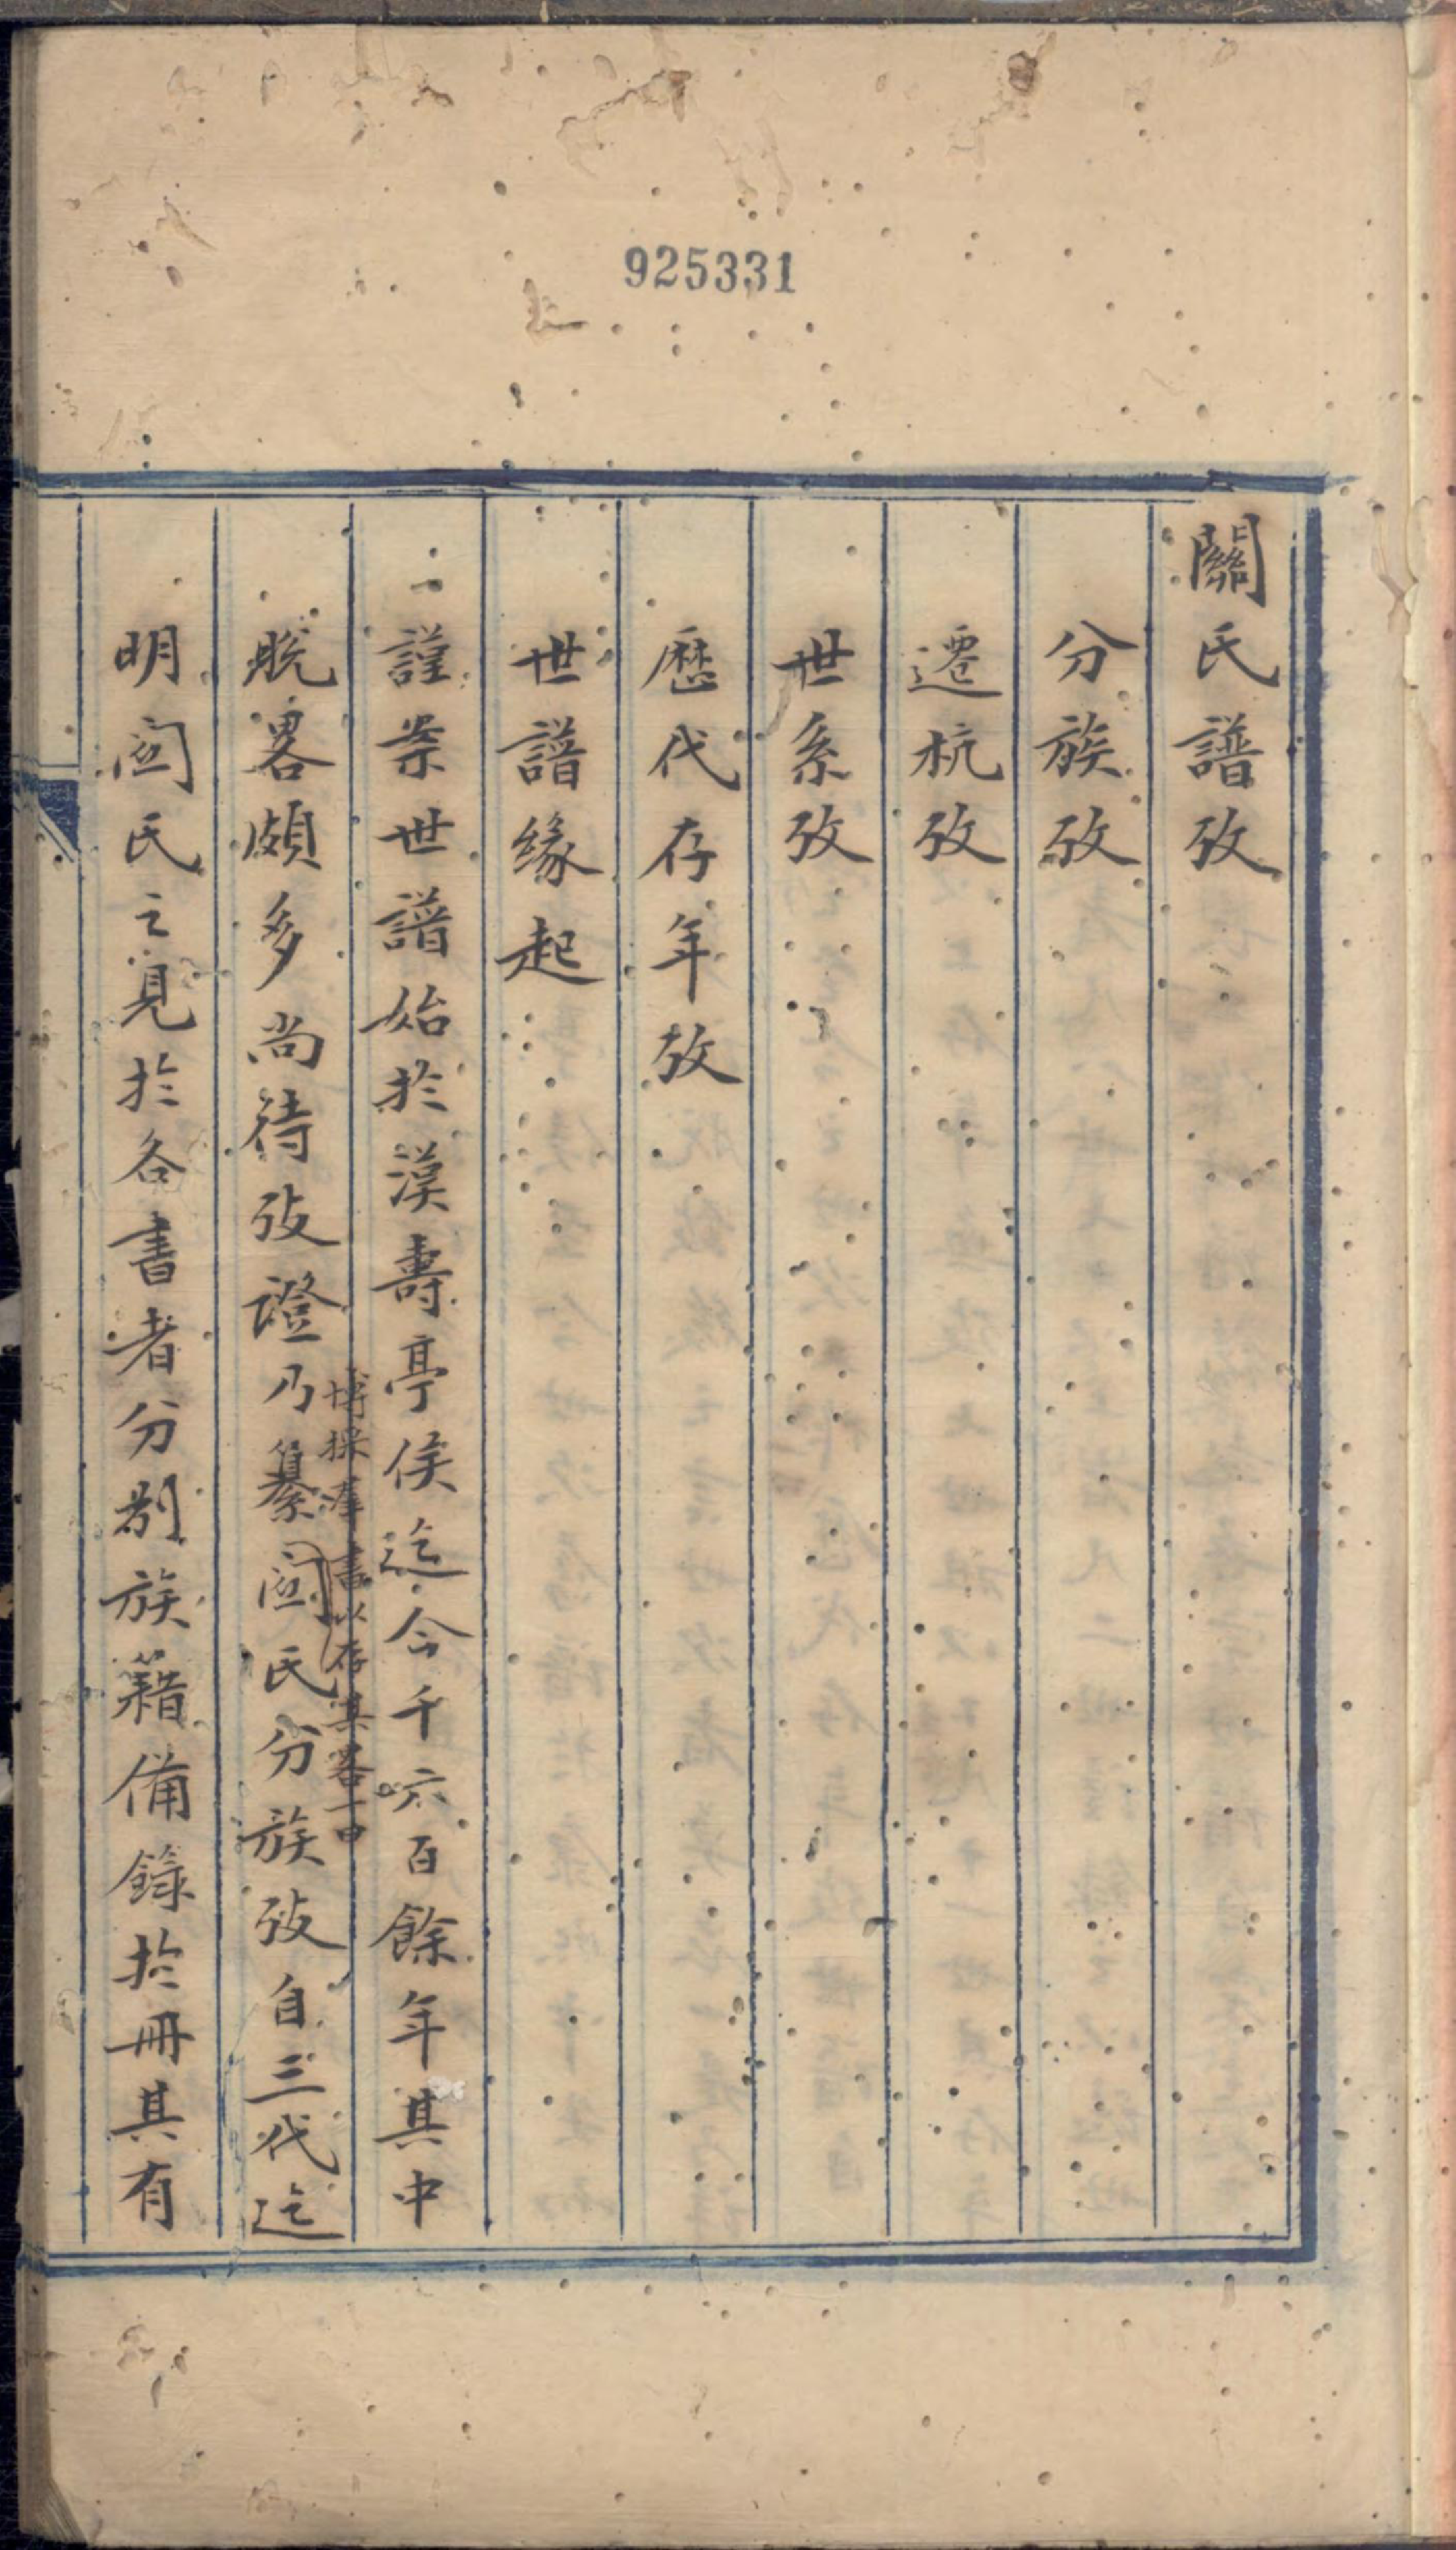 925331
關氏譜攷
分族攷
遷杭攷
世系攷
歷代存年攷
世譜緣起
一謹案世譜始於漢壽亭侯迄今千六百餘年其中
脫畧頗多尚待攷證乃纂関氏分族攷自三代迄
博採羣書以存其畧一曰
明関氏之見於各書者分別族籍備錄於冊其有